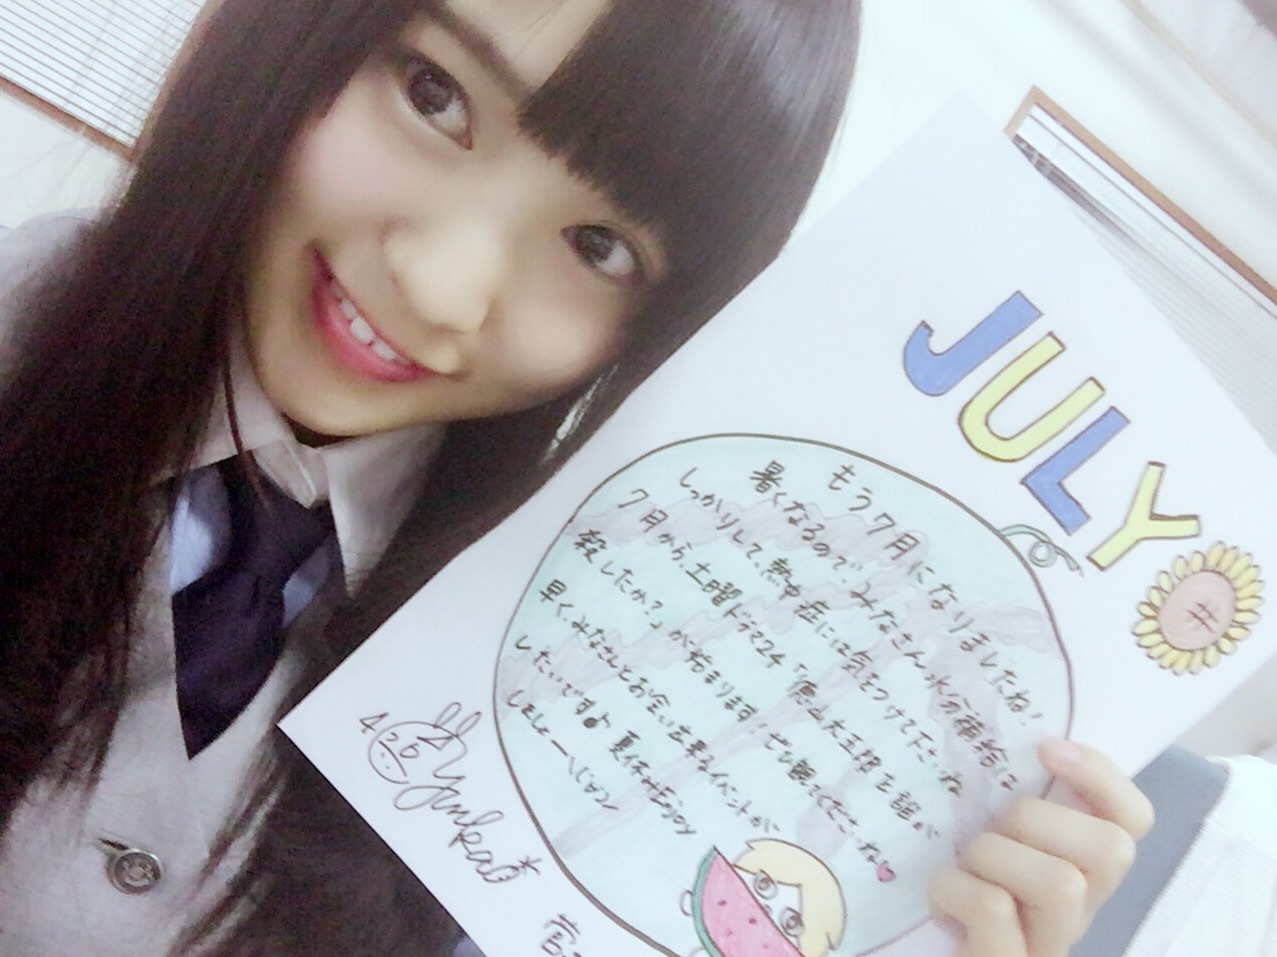 JULY
もう7月になりましたね!
暑くなるので、みなさん水分補給は
しっかりして熱中症には気をつけて下さいね
7月から土曜ドラマ24「徳山大五郎を誰が
殺したか?」が始まります!ぜひ観てくださいね♥
早く、みなさんとお会い出来るイベントが
したいです♪ 夏休みEnjoy
しましょー\(^^)/
Yuuka
菅